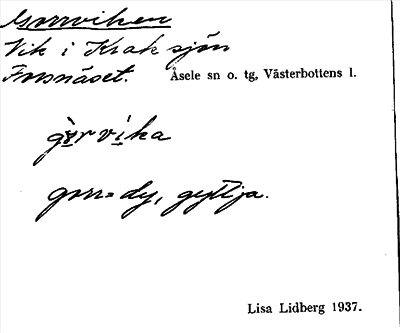 Gorrviken
Vik i Kraksjön
Forsnäset. Åsele sn o. tg, Västerbottens l.
gɤ̀r vi̠ka
gorr = dy, gyttja.
Lisa Lidberg 1937.